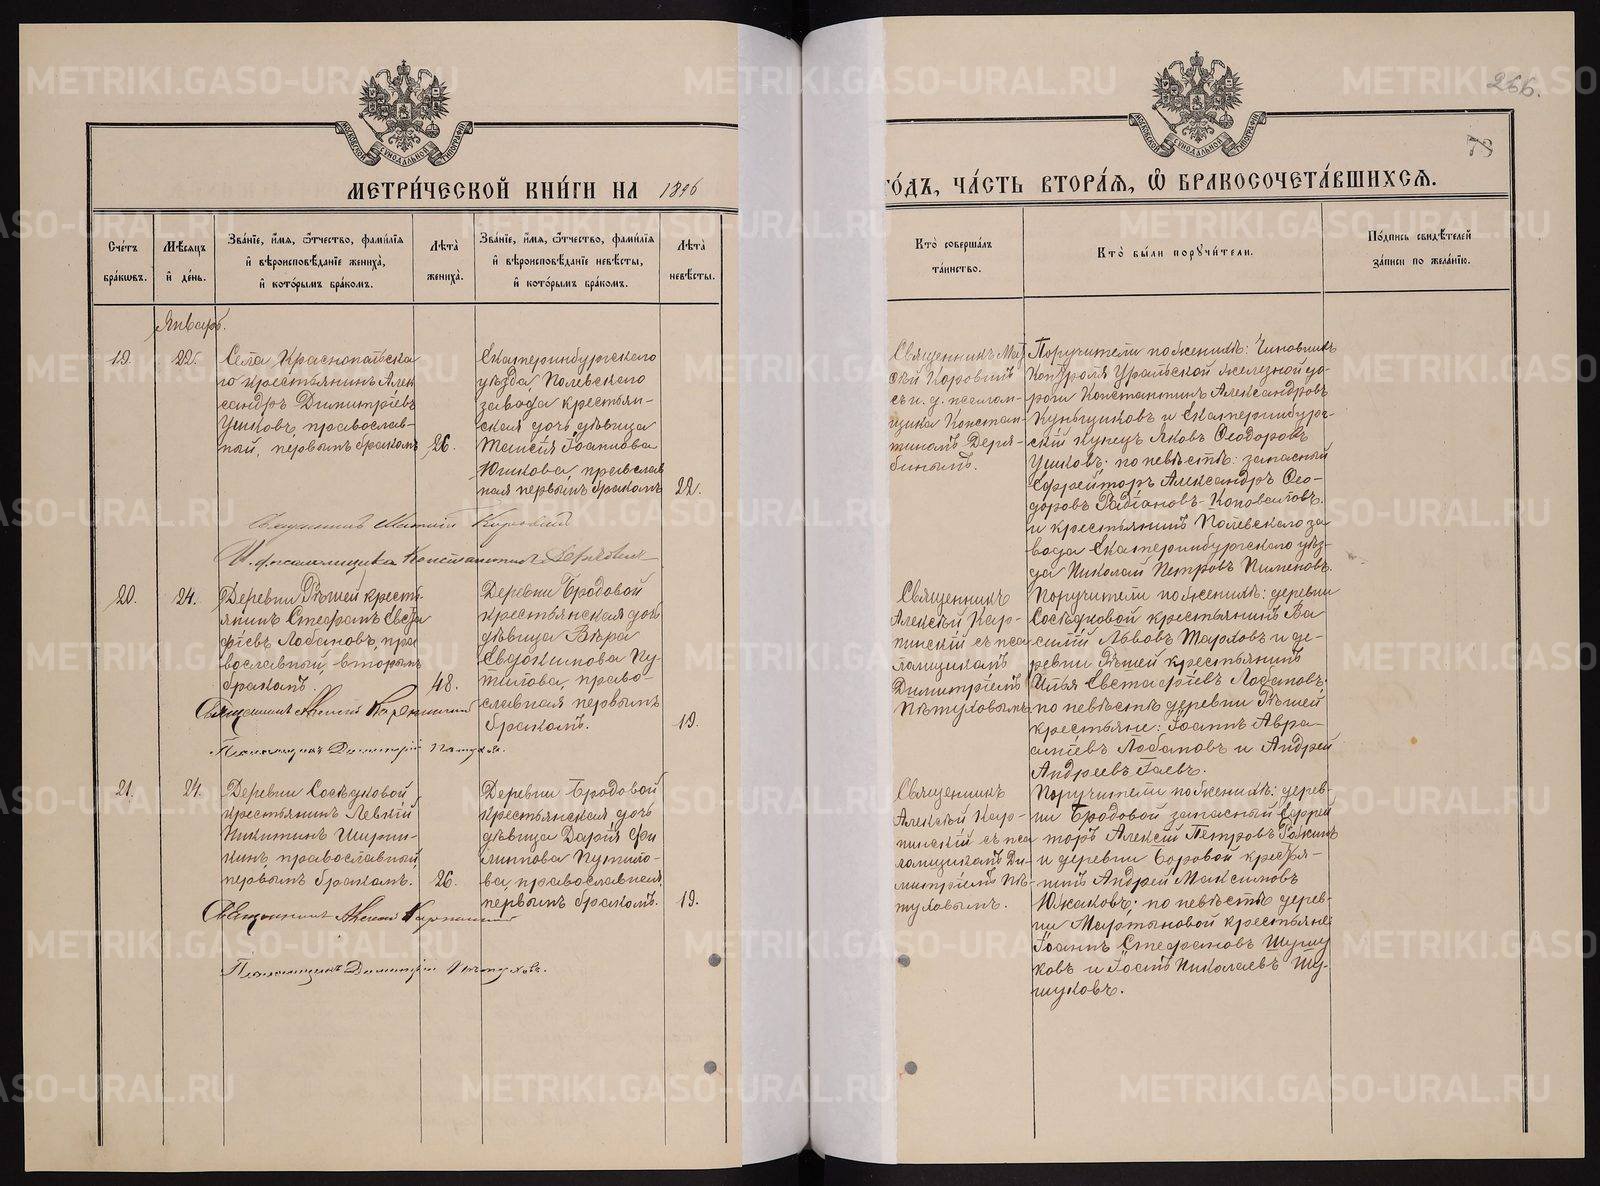 METRIKI.GASO-URAL.RU
266.
73
МОСКОВСКОЙ СѴНОДАЛЬНОЙ ТИПОГРАФІИ
МЕТРИ́ЧЕСКОЙ КНИ́ГИ НА 1896
ГО́ДЪ, ЧА́СТЬ ВТОРА́Я, Ѽ БРАКОСОЧЕТА́ВШИХСЯ.
Сче́тъ бра́ковъ.
Мѣ́сяцъ и҆ де́нь.
Зва́нїе, и҆́мя, ѻ҆́тчество, фами́лїя и҆ вѣроисповѣ́данїе жениха̀, и҆ кото́рымъ бра́комъ.
Лѣ́та̀ жениха̀.
Зва́нїе, и҆́мя, ѻ҆́тчество, фами́лїя и҆ вѣроисповѣ́данїе невѣ́сты, и҆ кото́рымъ бра́комъ.
Лѣ́та̀ невѣ́сты.
Кто̀ соверша́лъ та́инство.
Кто̀ бы́ли порꙋчи́тели.
По́дпись свидѣ́телей за́писи по жела́нїю.
Январь.
19.
22.
Села Краснопольска
го крестьянинъ Алек
сандръ Димитріевъ
Ушковъ, православ-
ный, первымъ бракомъ
26.
Екатеринбургскаго
уѣзда Полевскаго
завода крестьян-
ская дочь дѣвица
Таисія Іоаннова
Юшкова, православ
ная первымъ бракомъ
22.
Священникъ Мат
ѳей Коровинъ
съ и. д. псалом-
щика Констан-
тиномъ Деря-
бинымъ.
Поручители по женихѣ: Чиновникъ
Контроля Уральской желѣзной до-
роги Константинъ Александровъ
Куньщиковъ и Екатеринбург-
скій купецъ Яковъ Ѳеодоровъ
Ушковъ; по невѣстѣ: запасный
Ефрейторъ Александръ Ѳео-
доровъ Коноваловъ
и крестьянинъ Полевскаго за
вода Екатеринбургскаго уѣз-
да Николай Петровъ Пименовъ.
Священникъ Матѳей Коровинъ
И. д. псаломщика Константинъ Дерябинъ
20.
24.
Деревни Рѣшей кресть
янинъ Стефанъ Евста
фіевъ Лобановъ, пра
вославный, вторымъ
бракомъ.
48.
Деревни Бродовой
крестьянская дочь
дѣвица Вѣра
Евдокимова Пу-
тилова, право-
славная первымъ
бракомъ.
19.
Священникъ
Алексѣй Кар-
пинскій съ пса
ломщикомъ
Димитріемъ
Пѣтуховымъ
Поручители по женихѣ: деревни
Сосѣдковой крестьянинъ Ва
силій Львовъ Тарховъ и де-
ревни Рѣшей крестьянинъ
Илья Евстафіевъ Лобановъ;
по невѣстѣ деревни Рѣшей
крестьяне: Іоаннъ Авра-
аміевъ Лобановъ и Андрей
Андреевъ Гаевъ.
Священникъ Алексѣй Карпинскій
Псаломщикъ Димитрій Пѣтуховъ.
21.
24.
Деревни Сосѣдковой
крестьянинъ Левкій
Никитинъ Ширпи-
кинъ, православный,
первымъ бракомъ.
26.
Деревни Бродовой
крестьянская дочь
дѣвица Дарія Фи
липпова Путило-
ва, православная,
первымъ бракомъ.
19.
Священникъ
Алексѣй Кар-
пинскій съ пса
ломщикомъ Ди-
митріемъ Пѣ-
туховымъ.
Поручители по женихѣ: дерев-
ни Бродовой запасный Ефрей
торъ Алексѣй Петровъ
и деревни Боровой крестья-
нинъ Андрей Максимовъ
Южаковъ; по невѣстѣ дерев-
ни Мартяновой крестьяне:
Іоаннъ Стефановъ Шушу
ковъ и Николаевъ Шу-
шуковъ.
Священникъ Алексѣй Карпинскій
Псаломщикъ Димитрій Пѣтуховъ.